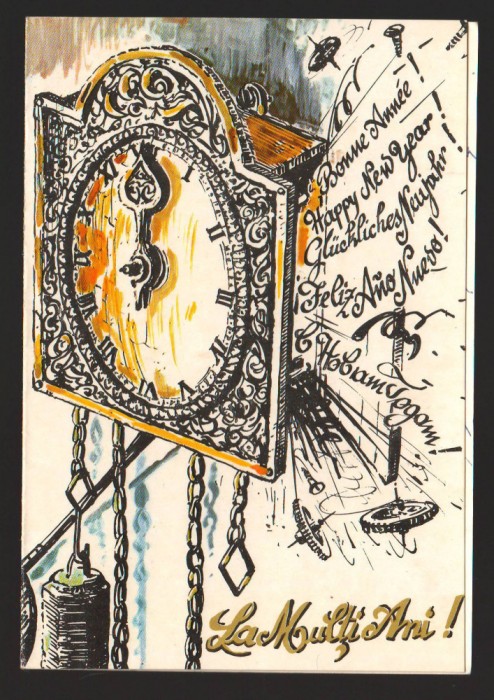 Bonne Année !
Happy New Year !
Glückliches Neujahr !
¡Feliz Año Nuevo !
С Новым Годом !
La Mulţi Ani !